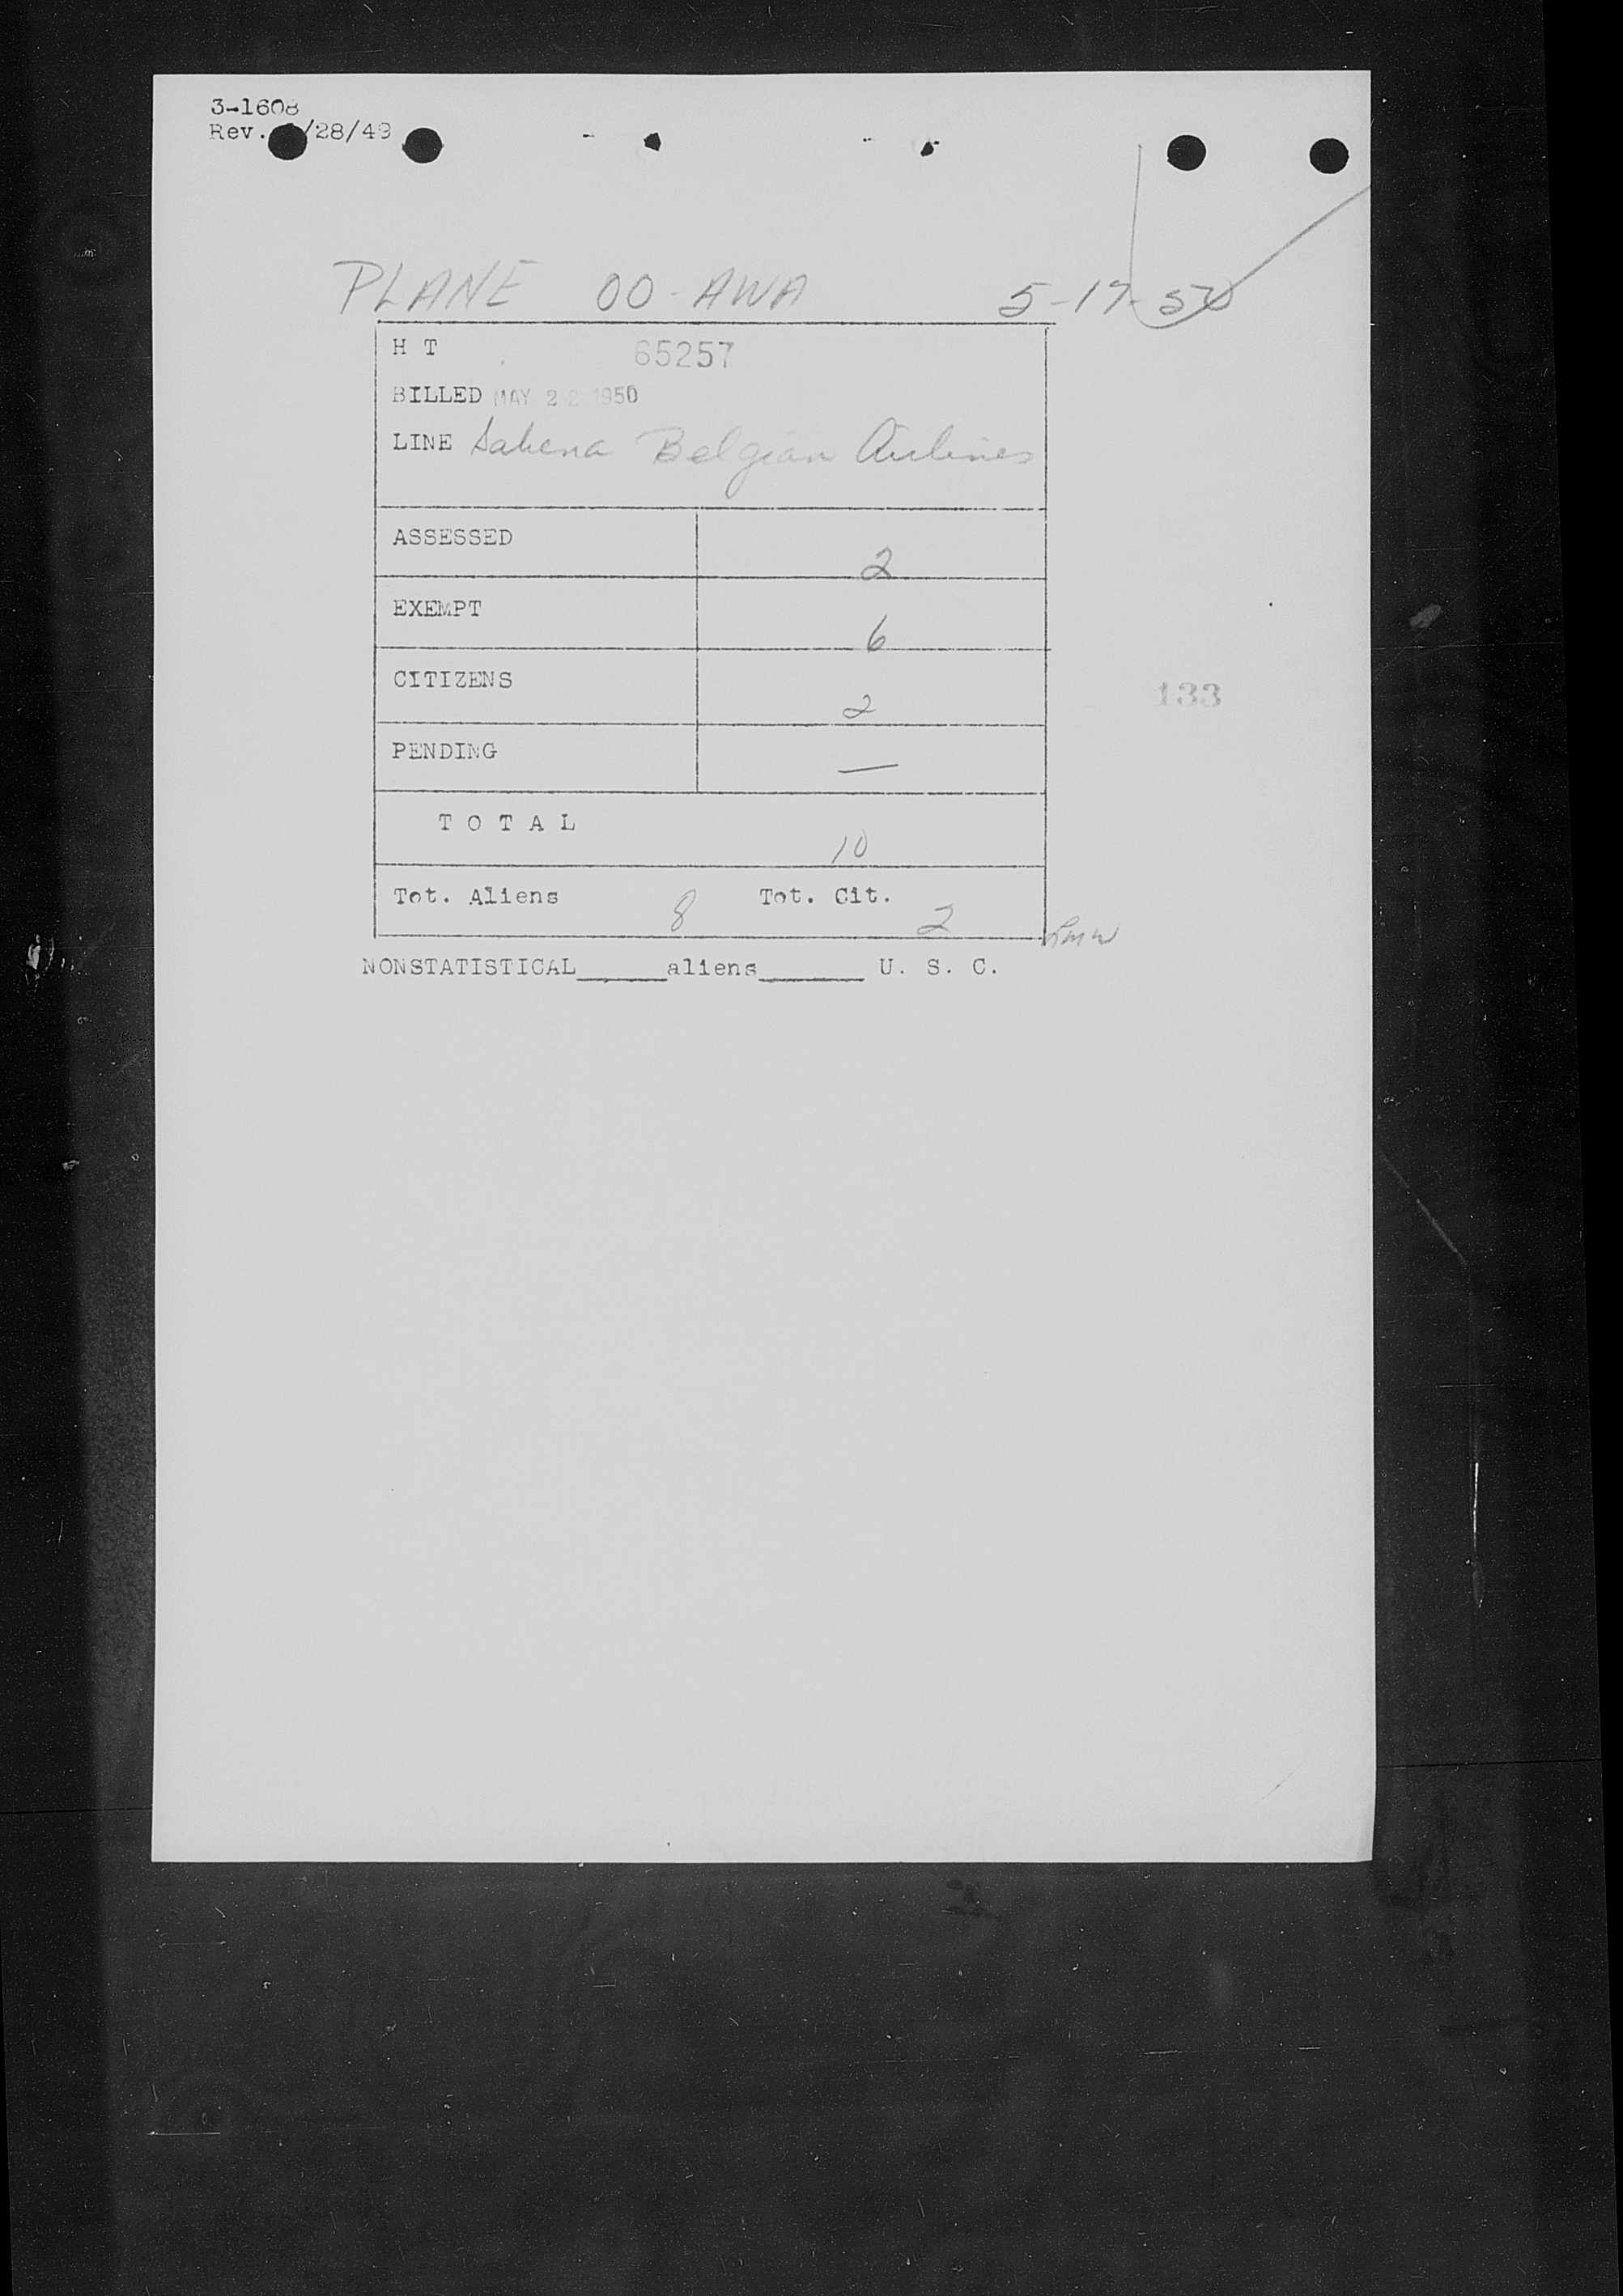 3-1608
Rev. /28/49
PLANE OO-AWA 5-17-50
H T 65257
BILLED MAY 22 1950
LINE Sabena Belgian Airlines
ASSESSED 2
EXEMPT 6
CITIZENS 2
133
PENDING —
T O T A L 10
Tot. Aliens 8 Tot. Cit. 2
NONSTATISTICAL______aliens_______ U. S. C.